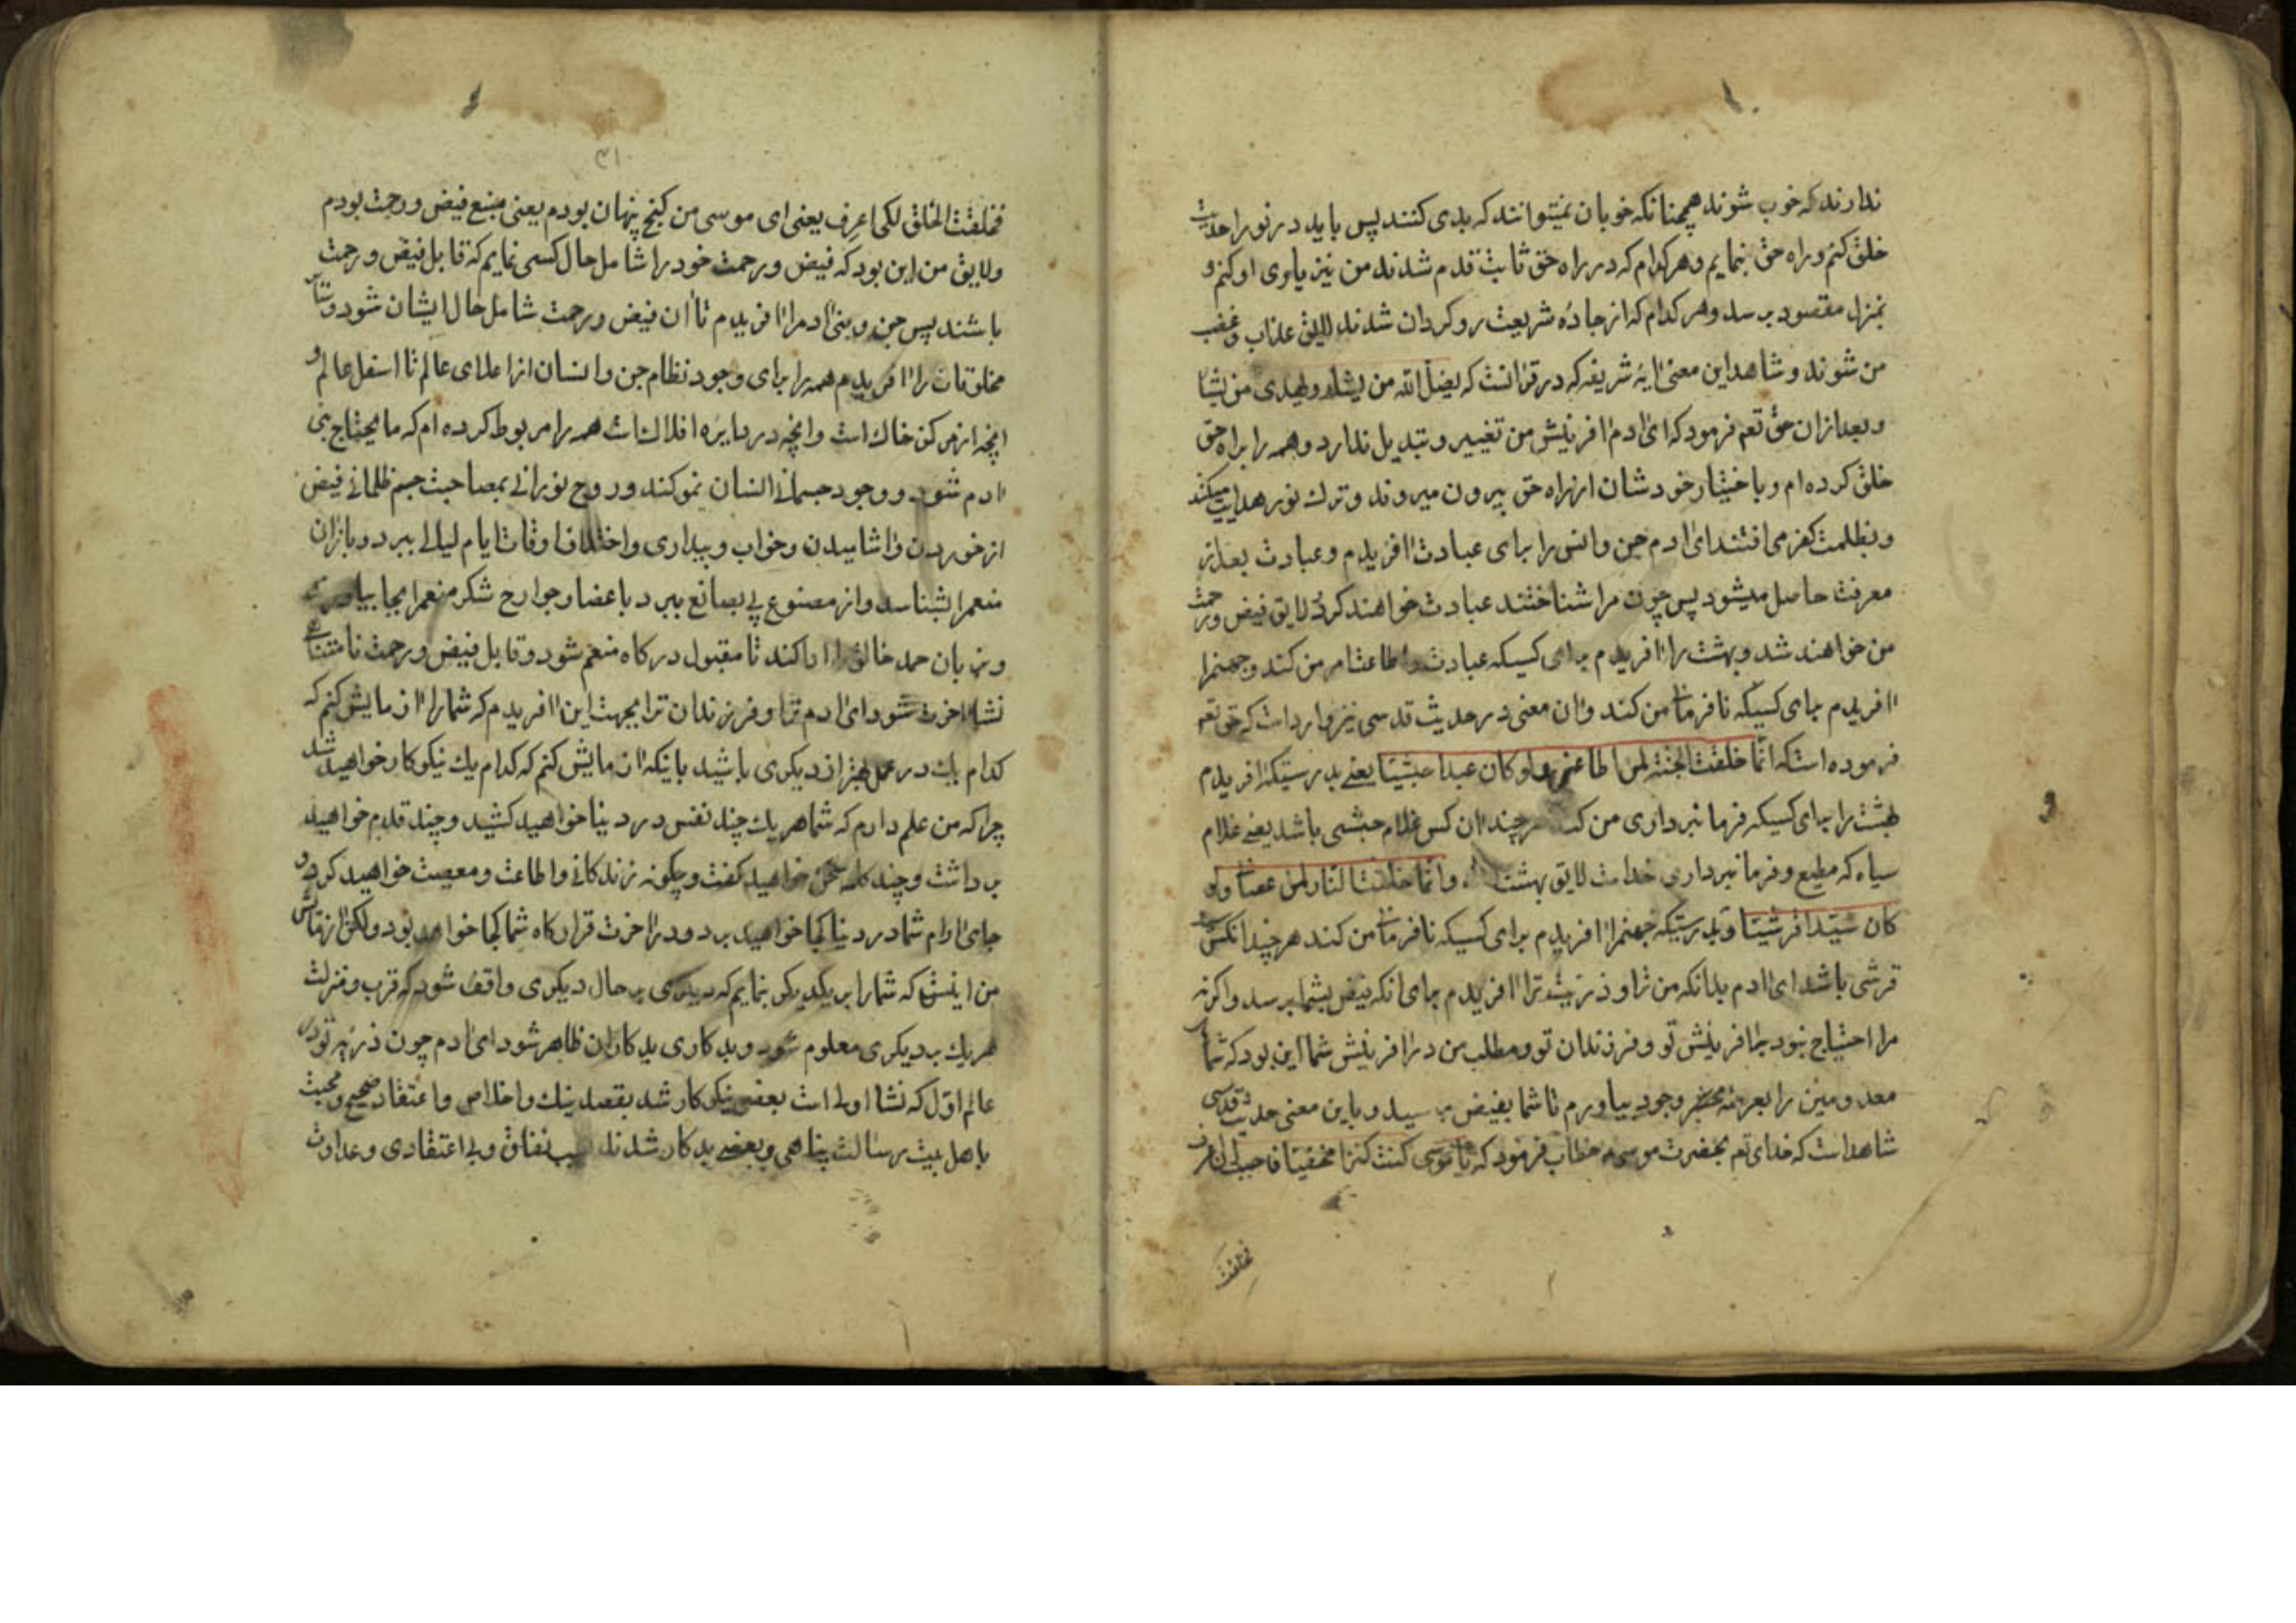 ندارند که خوب شوند همچنانکه خوبان نمیتوانند که بدی کنند پس باید در نور راحلت
خلق کنم و راه حق بنمایم و هر کدام که در راه حق ثابت قدم شدند من نیز یاوری او کنم و
بمنزل مقصود برسد و هر کدام که از جاده شریعت روگردان شدند لایق عذاب و غضب
من شوند و شاهد این معنی ایه شریفه که در قرانست که یضل الله من یشاء و یهدی من یشا
و بعد از ان حق تعم فرمود که ای ادم افرینش من تغییر و تبدیل ندارد و همه را براه حق
خلق کرده ام و باختیار خودشان از راه حق بیرون میروند و ترک نور هدایت میکند
و بظلمت کفر می افتند ای ادم جن و انس را برای عبادت افریدم و عبادت بعد از
معرفت حاصل میشود پس چون مرا شناختند عبادت خواهند کرد و لایق فیض و رحمت
من خواهند شد و بهشت را افریدم برای کسیکه عبادت و اطاعت امر من کند و جهنم را
افریدم برای کسیکه نافرمانی من کند و ان معنی در حدیث قدسی نیز وارد است که حق تعم
فرموده است که انما خلقت الجنة لمن اطاعنی ولو کان عبدا حبشیا یعنی بدرستیکه افریدم
بهشت را برای کسیکه فرمانبرداری من کند هر چند ان کس غلام حبشی باشد یعنی غلام
سیاه که مطیع و فرمانبرداری خداست لایق بهشت و انما خلقت النار لمن عصانی ولو
کان سیدا قرشیا و بدرستیکه جهنم را افریدم برای کسیکه نافرمانی من کند هر چند انکس سید
قرشی باشد ای ادم بدانکه من ترا و ذریت ترا افریدم برای انکه فیض بشما برسد و اگر نه
مرا احتیاج نبود بافرینش تو و فرزندان تو و مطلب من در افرینش شما این بود که شما
معدومین را بعرصه وجود بیاورم تا شما بفیض برسید و باین معنی حدیث قدسی
شاهد است که خدای تعم بحضرت موسی خطاب فرمود که یا موسی کنت کنزا مخفیا فاحببت ان اعرف
فخلقت
فخلقت الخلق لکی اعرف یعنی ای موسی من کنج پنهان بودم یعنی منبع فیض و رحمت بودم
و لایق من این بود که فیض و رحمت خود را شامل حال کسی نمایم که قابل فیض و رحمت
باشند پس جن و بنی ادم را افریدم تا ان فیض و رحمت شامل حال ایشان شود و سایر
مخلوقات را افریدم همه را برای وجود نظام جن و انسان از اعلای عالم تا اسفل عالم و
انچه از مرکز خاک است و انچه در دایره افلاکست همه را مربوط کرده ام که مایحتاج بنی
ادم شود و وجود جسمانی انسان نمو کند و روح نورانی بمصاحبت جسم ظلمانی فیض
از خوردن و اشامیدن و خواب و بیداری و اختلاف اوقات ایام لیالی ببرد و باز ان
منعم را بشناسد و از مصنوع پی بصانع ببرد باعضا و جوارح شکر منعم را بجا بیاورد
و زبان حمد خالق را ادا کند تا مقبول درکاه منعم شود و قابل فیض و رحمت نامتناهی
نشاء اخرت شود ای ادم ترا و فرزندان ترا بجهت این افریدم که شما را ازمایش کنم که
کدام یک در عمل بهتر از دیکری باشید بانیکه ازمایش کنم که کدام یک نیکو کار خواهید شد
چرا که من علم دارم که شما هر یک چند نفس در دنیا خواهید کشید و چند قدم خواهید
برداشت و چند کلمه سخن خواهید کفت و چکونه زندکانی و اطاعت و معصیت خواهید کرد و در
جای ارام شما در دنیا کجا خواهید برد و در اخرت قرارکاه شما کجا خواهد بود و لکن ازمایش
من اینست که شما را بر یکدیکر بنمایم که دیکری بر حال دیکری واقف شود که قرب و منزلت
هر یک بدیکری معلوم شود و بدکاری بدکاران ظاهر شود ای ادم چون ذریه تو در
عالم اول که نشا اولی است بعضی نیکو کار شد بقصد نیک و اخلاص و اعتقاد صحیح و محبت
باهل بیت رسالت پناهی و بعضی بدکار شدند بسبب نفاق و بی اعتقادی و عداوت